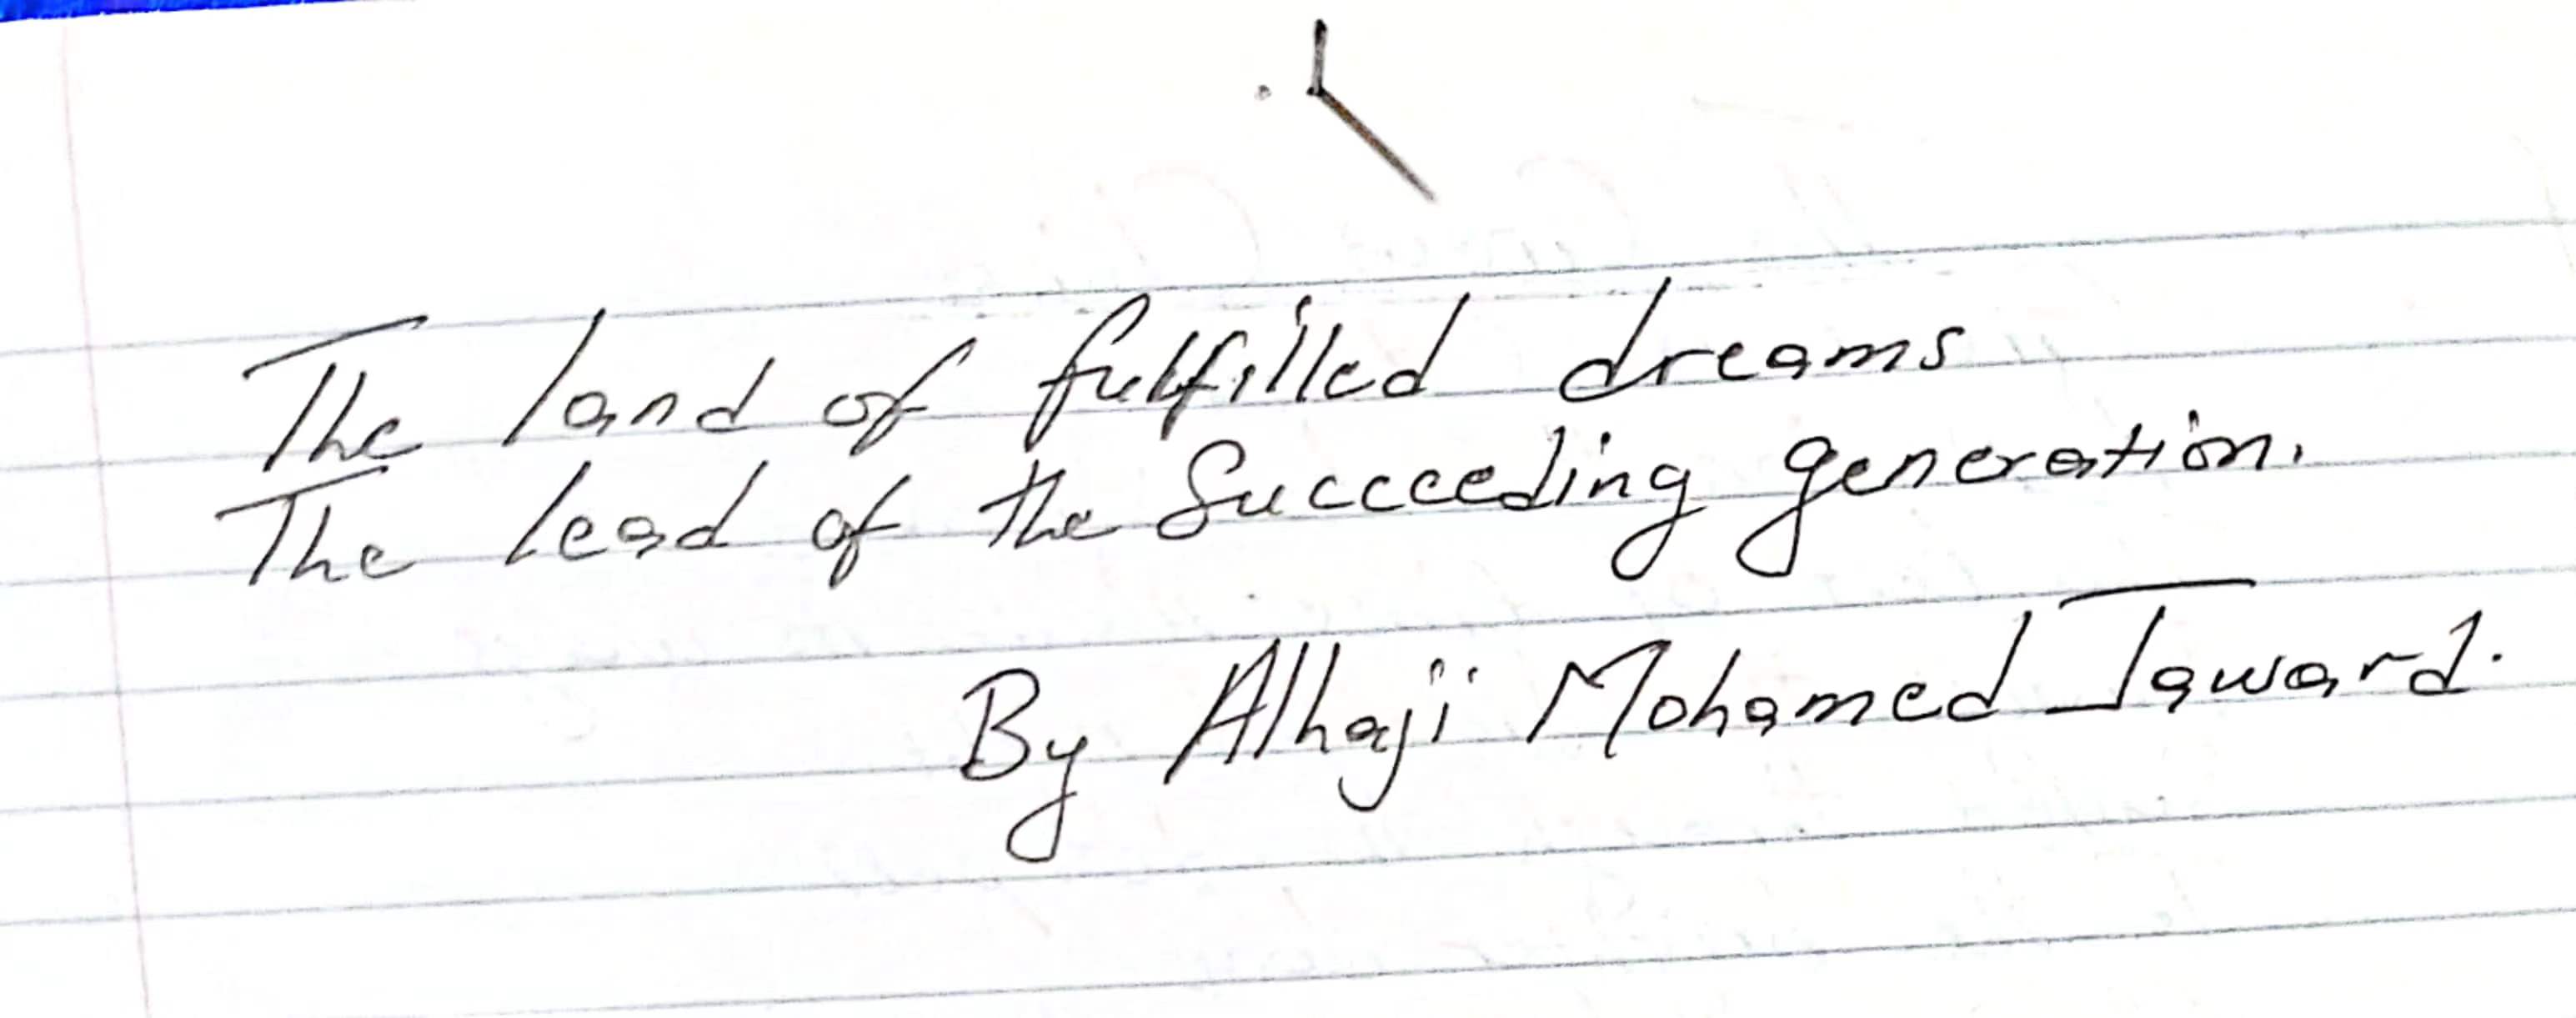 The land of fulfilled dreams
The lead of the Succeeding generation.
By Alhaji Mohamed Jaward.